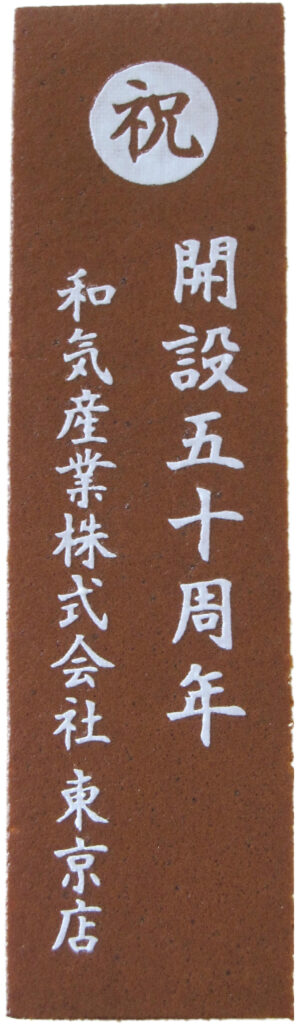 祝
開設五十周年
和気産業株式会社 東京店